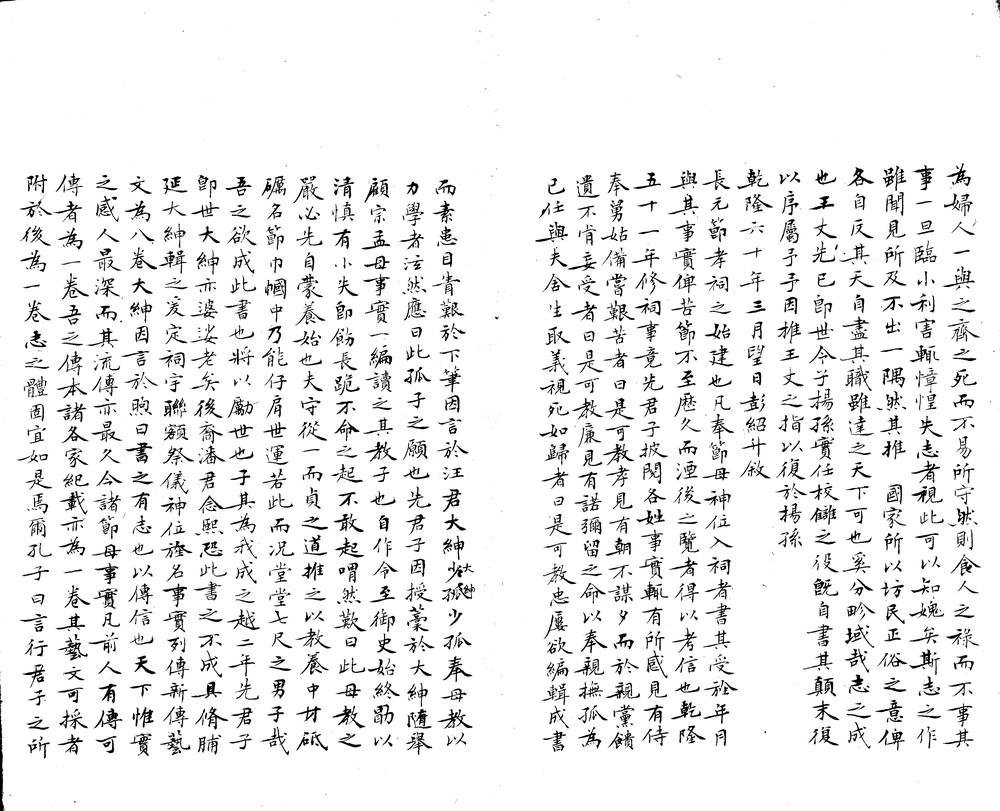 為婦人一與之齊之死而不易所守然則食人之祿而不事其
事一旦臨小利害輒憧惶失志者視此可以知媿矣斯志之作
雖聞見所及不出一隅然其推　國家所以坊民正俗之意俾
各自反其天自盡其職雖達之天下可也奚分畛域哉志之成
也王丈先已卽世令子揚孫實任校讎之役旣自書其顛末復
以序屬予予因推王丈之指以復於揚孫
乾隆六十年三月望日彭紹升敘
長元節孝祠之始建也凡奉節母神位入祠者書其受旌年月
與其事實俾苦節不至歷久而湮後之覽者得以考信也乾隆
五十一年修祠事竟先君子披閱各姓事實輒有所感見有侍
奉舅姑備嘗艱苦者曰是可教孝見有朝不謀夕而於親黨饋
遺不肯妄受者曰是可教廉見有諾彌留之命以奉親撫孤為
己任與夫舍生取義視死如歸者曰是可教忠屢欲編輯成書
而素患目眚艱於下筆因言於汪君大紳少孤大紳少孤奉母教以
力學者泫然應曰此孤子之願也先君子因授藁於大紳隨舉
顧宗孟母事實一編讀之其教子也自作令至御史始終勖以
清慎有小失卽飭長跪不命之起不敢起喟然歎曰此母教之
嚴必先自蒙養始也夫守從一而貞之道推之以教養中材砥
礪名節巾幗中乃能仔肩世運若此而況堂堂七尺之男子哉
吾之欲成此書也將以勵世也子其為我成之越二年先君子
卽世大紳亦婆娑老矣後裔潘君念熙恐此書之不成具脩脯
延大紳輯之爰定祠宇聯額祭儀神位旌名事實列傳新傳藝
文為八卷大紳因言於煦曰書之有志也以傳信也天下惟實
之感人最深而其流傳亦最久今諸節母事實凡前人有傳可
傳者為一卷吾之傳本諸各家紀載亦為一卷其藝文可採者
附於後為一卷志之體固宜如是焉爾孔子曰言行君子之所